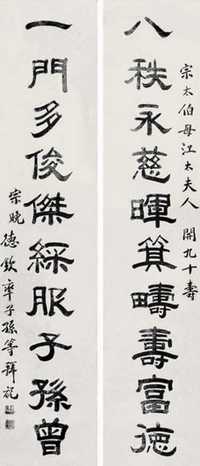 宗太伯母江太夫人 開九十壽
八秩永慈暉箕疇壽富德
一門多俊傑綵服子孫曾
宗曉 德欽率子孫等拜祝